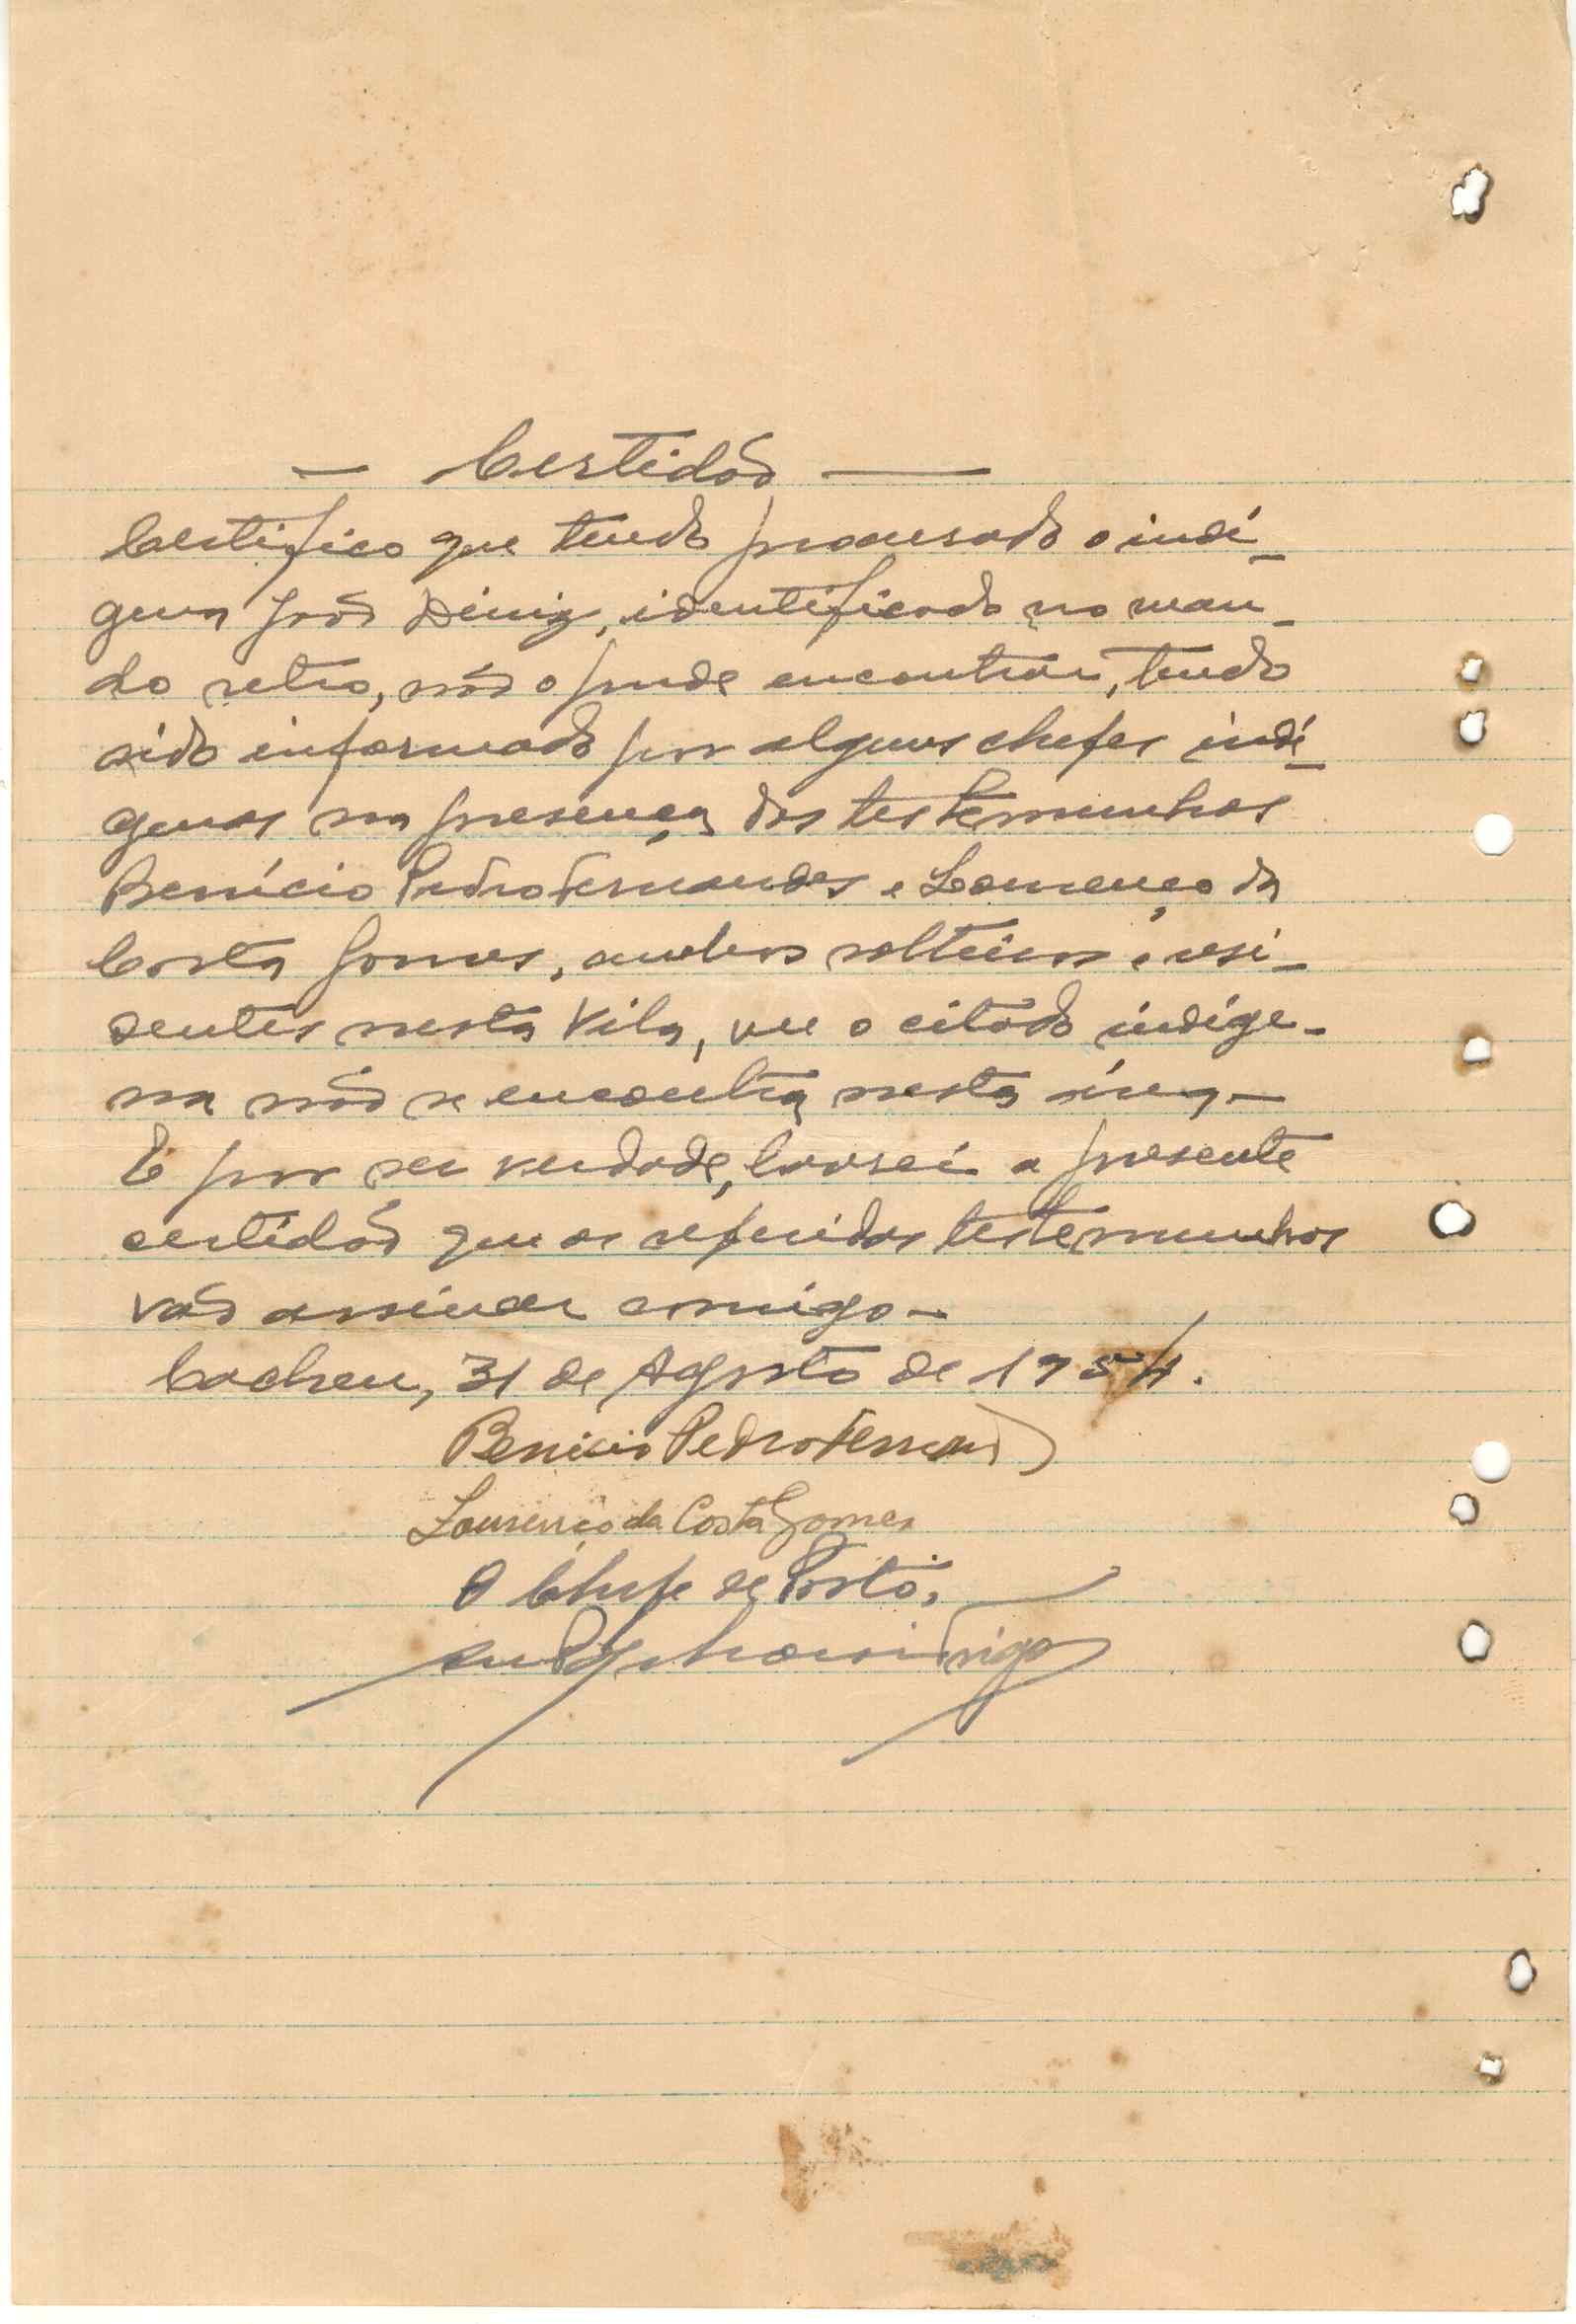 — Certidão —
Certifico que tendo procurado o indí-
gena João Diniz, identificado no man-
do retro, não o pude encontrar, tendo
sido informado por alguns chefes indí-
genas na presença das testemunhas
Benício Pedro Fernandes e Lourenço da
Costa Gomes, ambos solteiros e resi-
dentes nesta Vila, que o citado indíge-
na não se encontra nesta área—
E por ser verdade, lavrei a presente
certidão que as referidas testemunhas
vão assinar comigo—
Cacheu, 31 de Agosto de 1954.
Benicio Pedro Fernand
Lourenço da Costa Gomes
O Chefe de Posto,